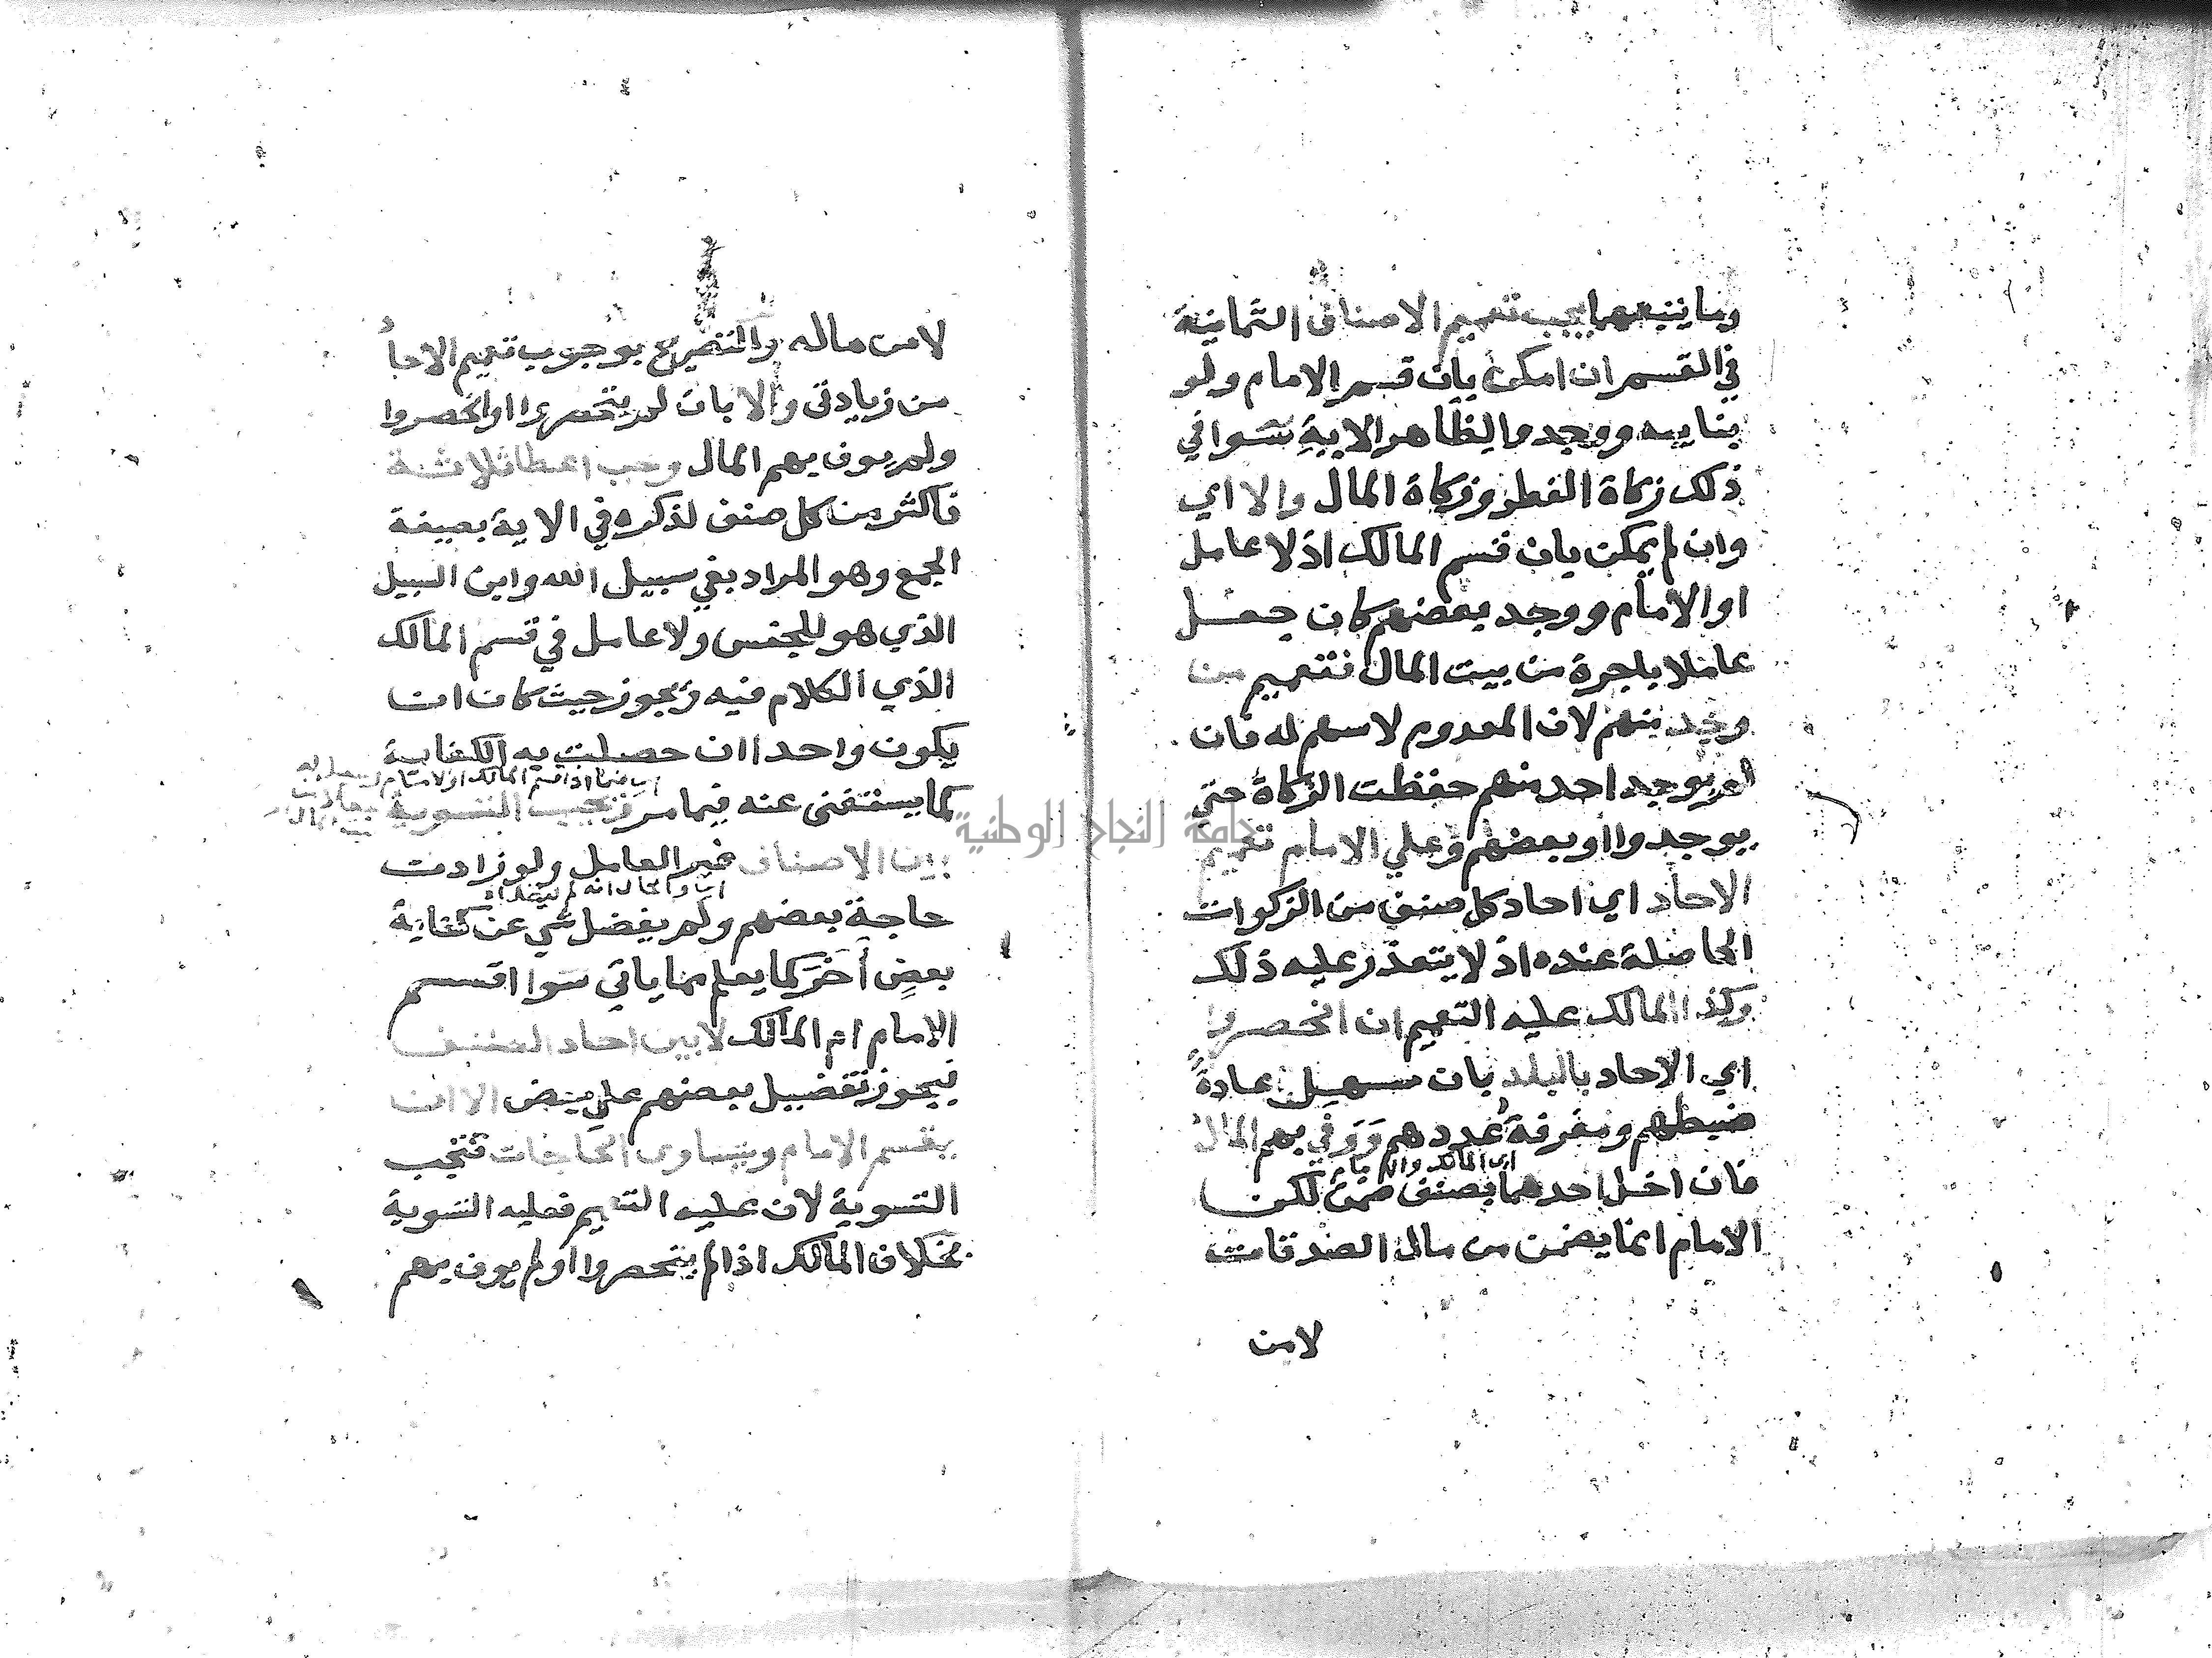 وما يتبعهما يجب تعميم الاصناف الثمانية
في القسم ان امكن بان قسم الامام ولو
بنايبه ووجدوا لظاهر الاية سوا في
ذلك زكاة الفطر وزكاة المال والا اي
وان لم يمكن بان قسم المالك اذ لا عامل
او الامام ووجد بعضهم كان جعل
عاملا باجرة من بيت المال فتعميم من
وجد منهم لان المعدوم لا سهم له فان
لم يوجد احد منهم حفظت الزكاة حتي
يوجدوا او بعضهم وعلي الامام تعميم
الاحاد اي احاد كل صنف من الزكوات
الحاصلة عنده اذ لا يتعذر عليه ذلك
وكذا المالك عليه التعميم ان انحصروا
اي الاحاد بالبلد بان سهل عادة
ضبطهم ومعرفة عددهم ووفي بهم المال
اي المالك والامام
فان اخل احدهما بصنف ضمن لكن
الامام انما يضمن من مال الصدقات
لامن
جامعة النجاح الوطنية
لامن ماله والتصريح بوجوب تعميم الاحاد
من زيادتي والا بان لم ينحصروا او انحصروا
ولم يوف بهم المال وجب اعطا ثلاثة
فاكثر من كل صنف لذكره في الاية بصيغة
الجمع وهو المراد بفي سبيل الله وابن السبيل
الذي هو للجنس ولا عامل في قسم المالك
الذي الكلام فيه ويجوز حيث كان ان
يكون واحدا ان حصلت به الكفاية
كما يستغنى عنه فيما مر وتجب التسوية
بين الاصناف غير العامل ولو زادت
حاجة بعضهم ولم يفضل شي عن كفاية
بعض أخر كما يعلم مما ياتي سوا اقسم
الامام ام المالك لا بين احاد الصنف
فيجوز تفضيل بعضهم علي بعض الا ان
يقسم الامام وتتساوى الحاجات فتجب
التسوية لان عليه التعميم فعليه التسوية
بخلاف المالك اذا لم ينحصروا او لم يوف بهم